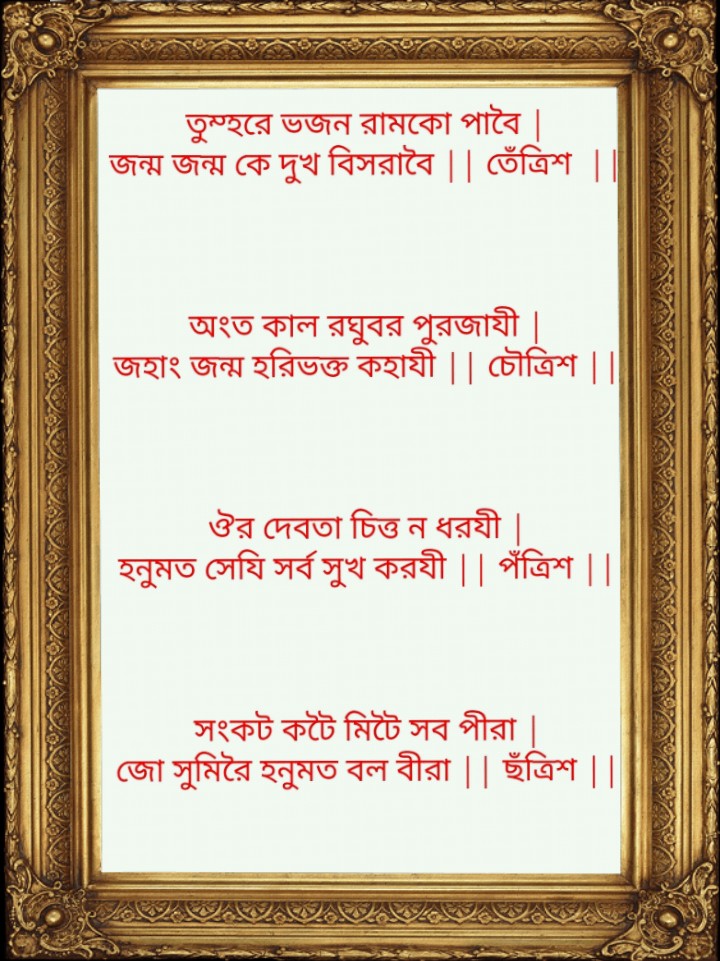 তুম্হরে ভজন রামকো পাবৈ |
জন্ম জন্ম কে দুখ বিসরাবৈ || তেঁত্রিশ ||
অংত কাল রঘুবর পুরজাযী |
জহাং জন্ম হরিভক্ত কহাযী || চৌত্রিশ ||
ঔর দেবতা চিত্ত ন ধরযী |
হনুমত সেযি সর্ব সুখ করযী || পঁত্রিশ ||
সংকট কটৈ মিটৈ সব পীরা |
জো সুমিরৈ হনুমত বল বীরা || ছঁত্রিশ ||